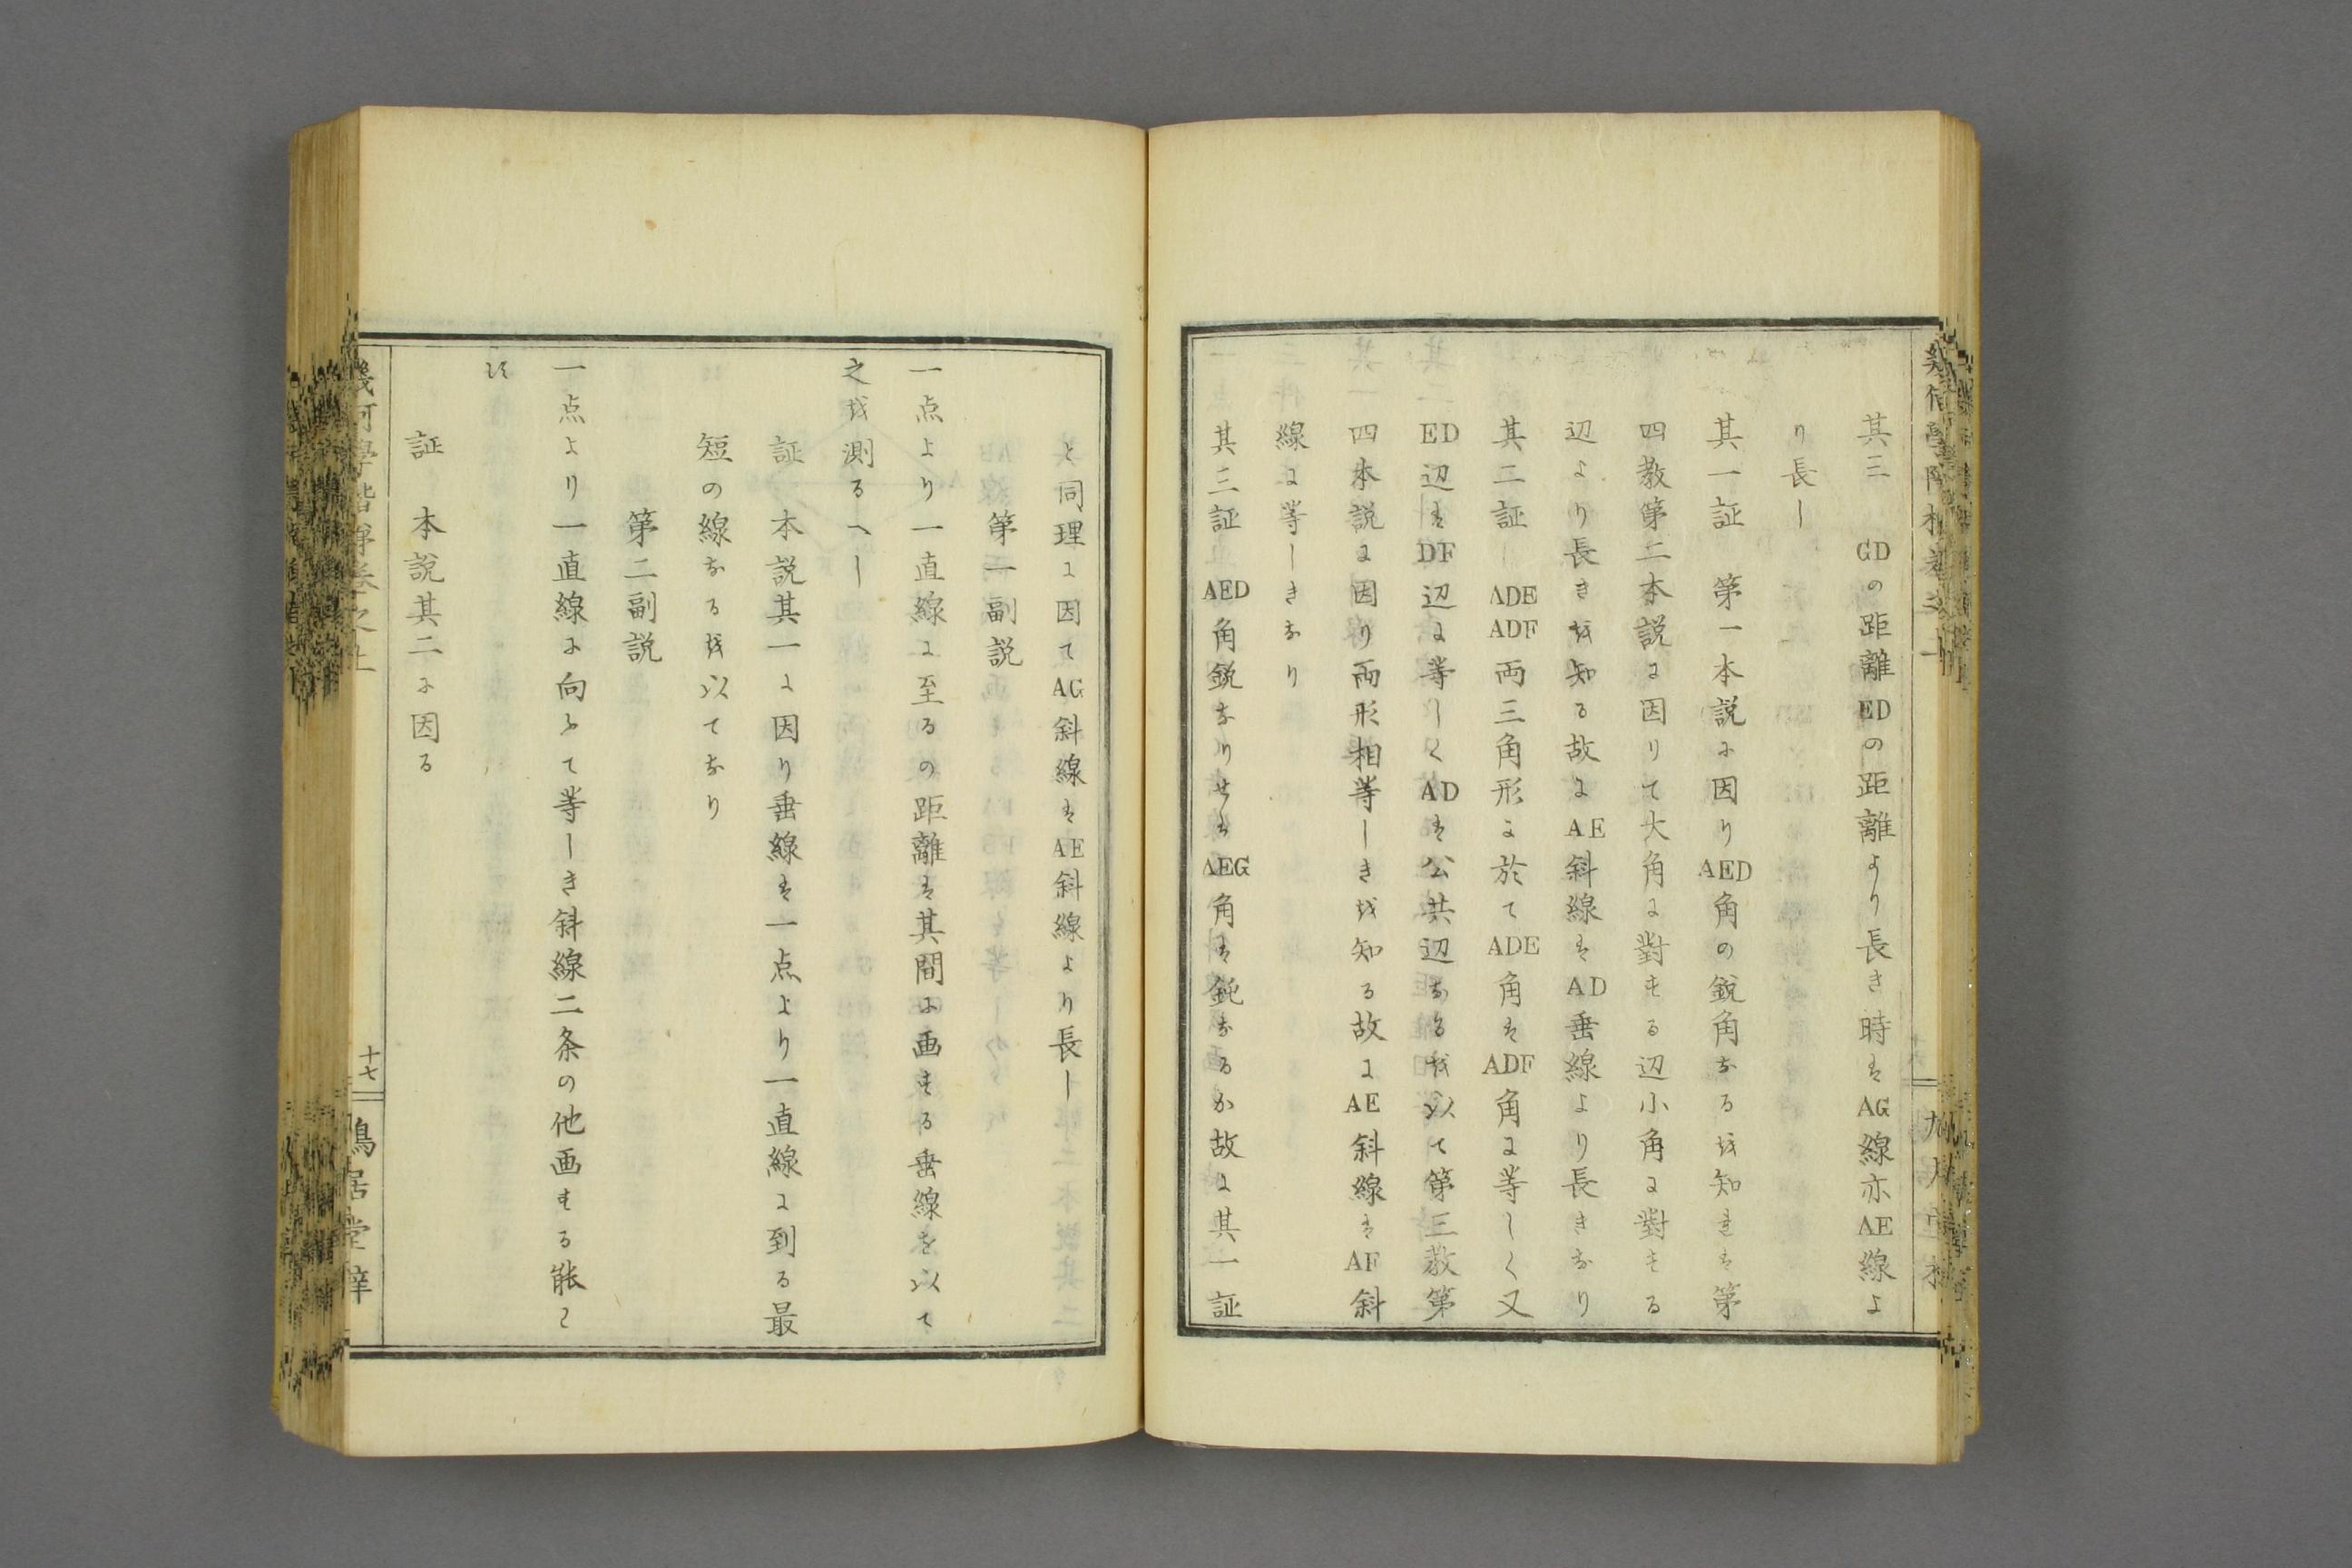 其三 GDの距離EDの距離より長き時はAG線亦AE線よ
り長し
其一証 第一本説に因りAED角の鋭角なるを知れは第
四教第二本説に因りて大角に對する辺小角に對する
辺より長きを知る故にAE斜線はAD垂線より長きなり
其二証 ADE ADF両三角形に於てADE角はADF角に等しく又
ED辺はDF辺に等しくADは公共辺なるを以て第三教第
四本説に因り両形相等しきを知る故にAE斜線はAF斜
線に等しきなり
其三証 AED角鋭なりせはAEG角は鈍なるか故に其一証
と同理に因てAG斜線はAE斜線より長し
第一副説
一点より一直線に至るの距離は其間に画する垂線を以て
之を測るへし
証 本説其一に因り垂線は一点より一直線に到る最
短の線なるを以てなり
第二副説
一点より一直線に向ふて等しき斜線二条の他画する能は
す
証 本説其二に因る
幾何學階梯巻之上
十七
鳴居堂梓